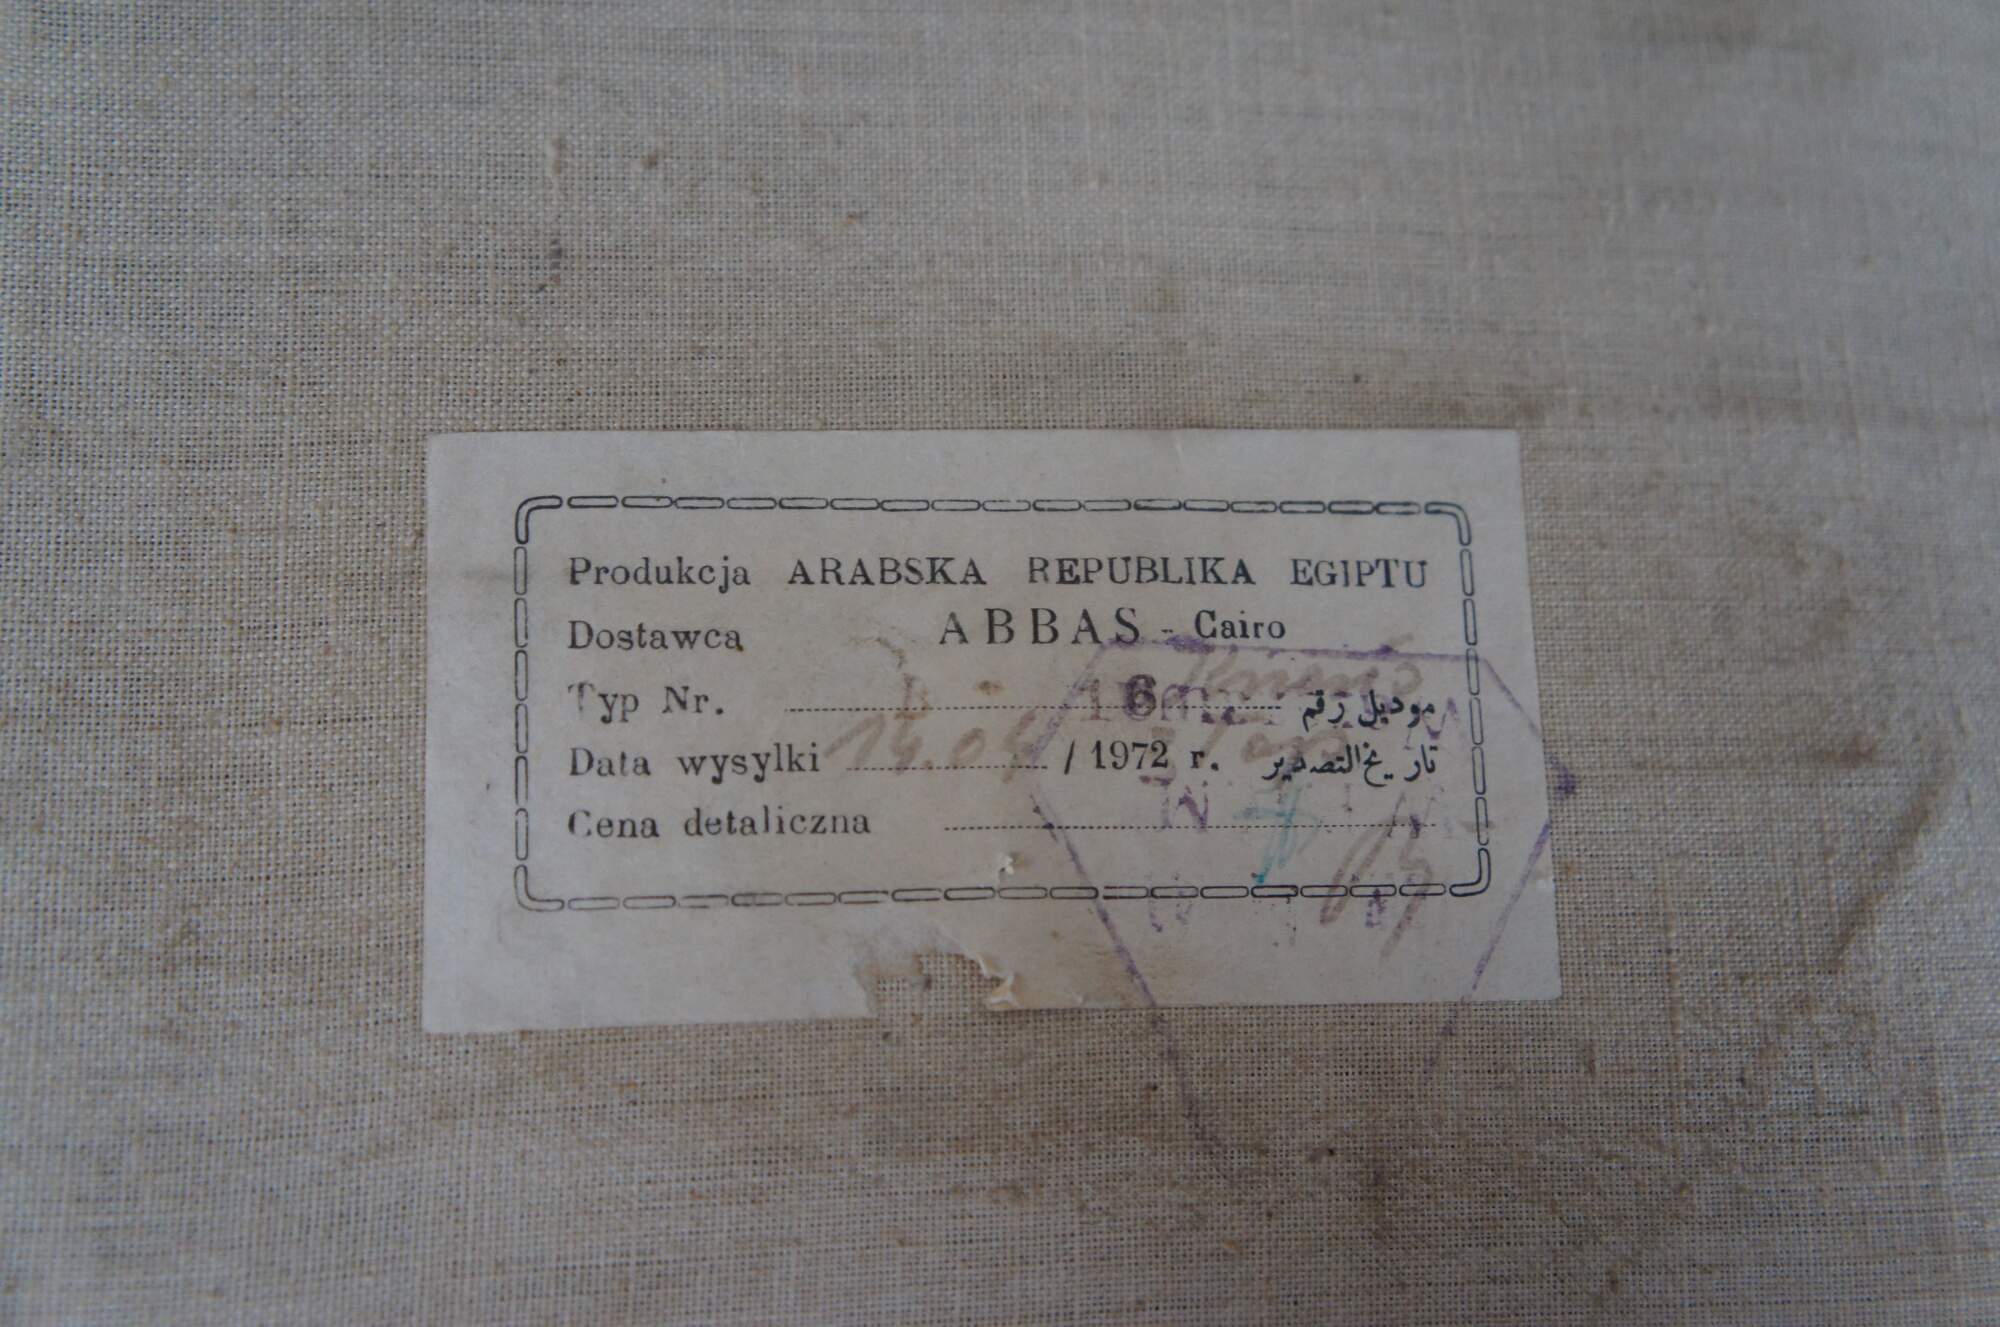 Produkcja ARABSKA REPUBLIKA EGIPTU
Dostawca ABBAS - Cairo
Typ Nr. موديل رقم
Data wysylki 14.04 / 1972 r. تاريخ التصدير
Cena detaliczna